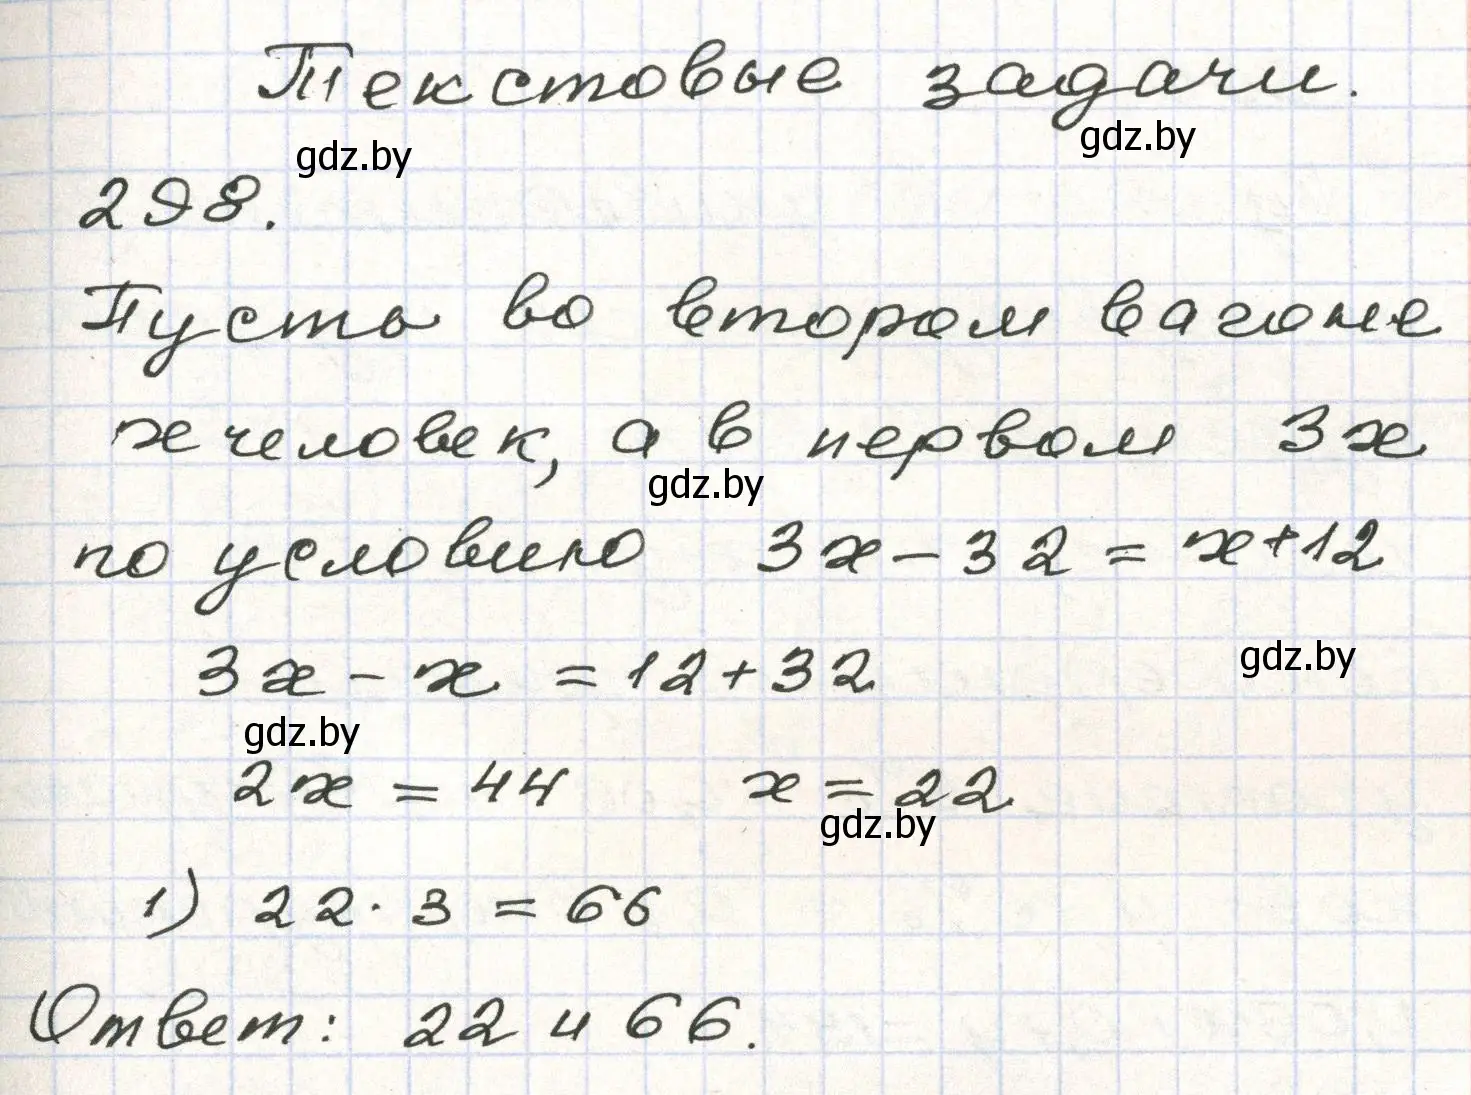 Текстовые задачи.
gdz.by
gdz.by
298.
Пусть во втором вагоне
x человек, а в первом 3x
gdz.by
по условию 3x - 32 = x + 12
3x - x = 12 + 32
gdz.by
gdz.by
2x = 44 x = 22
gdz.by
1) 22 · 3 = 66
Ответ: 22 и 66.